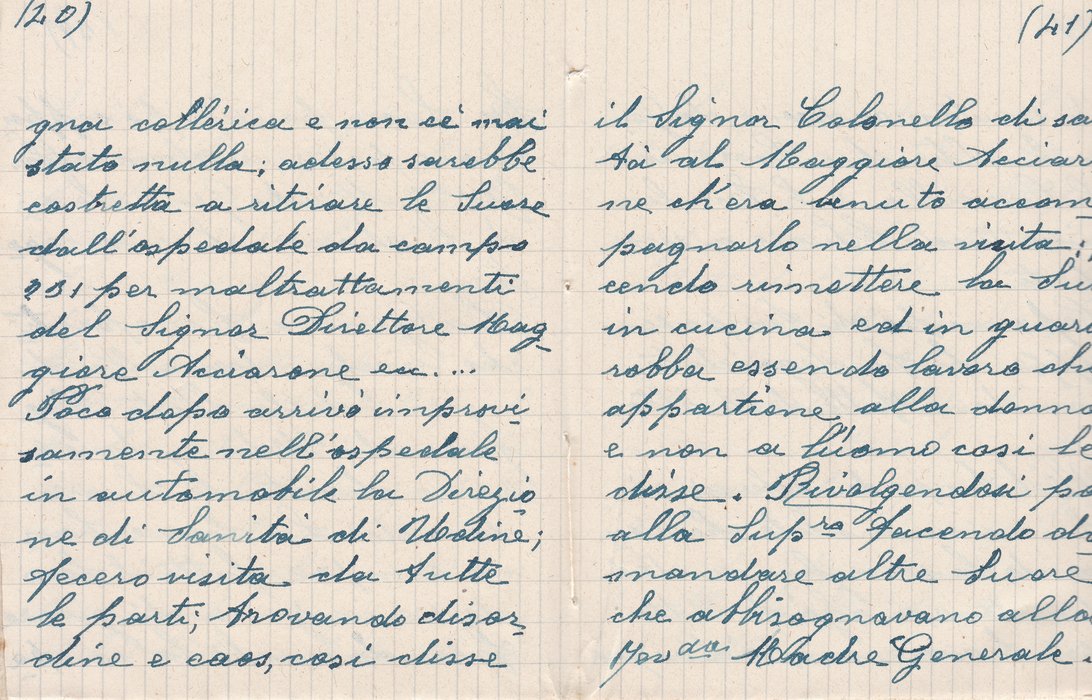 (20)
gna collèrica e non cè mai
stato nulla; adesso sarebbe
costretta a ritirare le Suore
dall'ospedale da campo
231 per maltrattamenti
del Signor Direttore Mag-
giore Acciarone ecc....
Poco dopo arrivò improvi-
samente nell'ospedale
in automobile la Direzio-
ne di Sanità di Udine;
fecero visita da tutte
le parti; trovando disor-
dine e caos, così disse
(41)
il Signor Colonello di sa
tà al Maggiore Acciar
ne ch'era venuto accom-
pagnarlo nella visita;
cendo rimettere la Su
in cucina ed in guar
robba essendo lavoro ch
appartiene alla donn
e non a l'uomo così le
disse. Rivolgendosi p
alla Supra facendo di
mandare altre Suore
che abbisognavano alla
Revda Madre Generale.